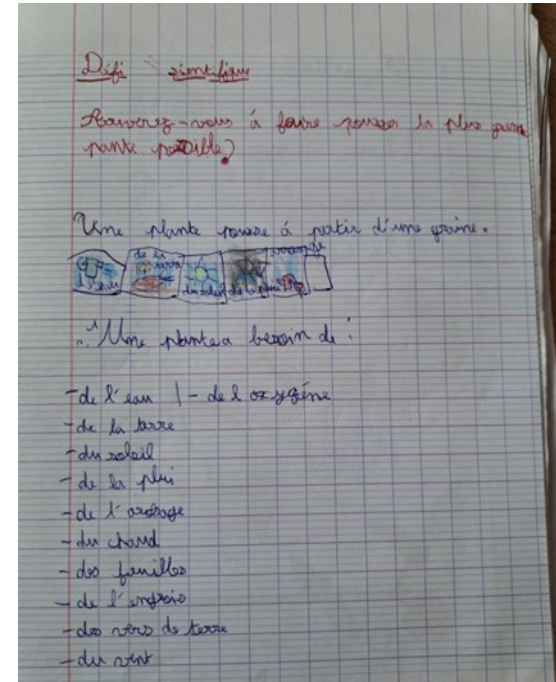 Défi scientifique
Arriverez-vous à faire pousser la plus grande
pante possible ?
Une plante pousse à partir d'une graine.
de l'eau de la terre du soleil de la pluie arrosage
Une plante a besoin de :
- de l'eau | - de l'oxygéne
- de la terre
- du soleil
- de la plui
- de l'arosage
- du chaud
- des feuilles
- de l'engrais
- des vers de terre
- du vent